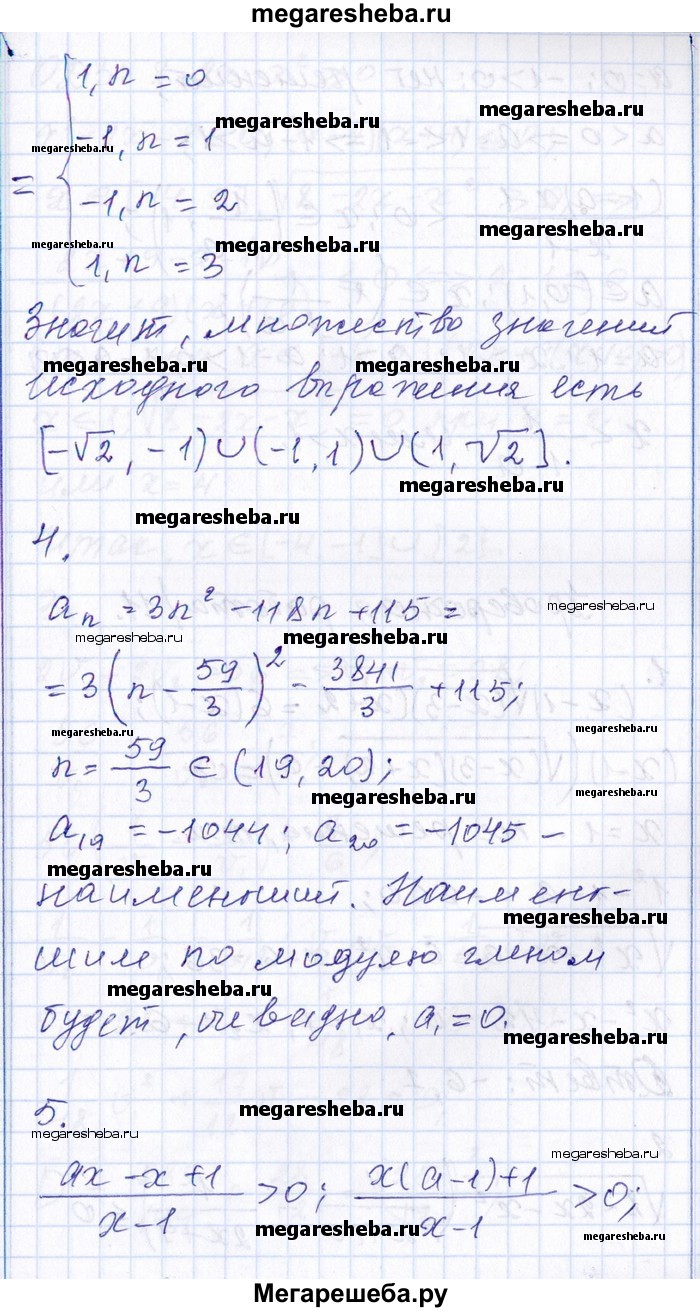 megaresheba.ru
1, n = 0
megaresheba.ru
-1, n = 1
megaresheba.ru
megaresheba.ru
=
-1, n = 2
megaresheba.ru
megaresheba.ru
megaresheba.ru
1, n = 3
Значит, множество значений
megaresheba.ru
megaresheba.ru
исходного выражения есть
[-√2, -1) ∪ (-1, 1) ∪ (1, √2].
megaresheba.ru
megaresheba.ru
4.
aₙ = 3n² - 118n + 115 =
megaresheba.ru
megaresheba.ru
megaresheba.ru
= 3(n - 59/3)² - 3841/3 + 115;
megaresheba.ru
megaresheba.ru
n = 59/3 ∈ (19, 20);
megaresheba.ru
megaresheba.ru
a₁₉ = -1044; a₂₀ = -1045 -
megaresheba.ru
megaresheba.ru
наименьший. Наимень-
megaresheba.ru
шим по модулю членом
megaresheba.ru
будет, очевидно, a₁ = 0.
megaresheba.ru
5.
megaresheba.ru
megaresheba.ru
megaresheba.ru
(ax - x + 1)/(x - 1) > 0; (x(a - 1) + 1)/(x - 1) > 0;
megaresheba.ru
megaresheba.ru
Мегарешеба.ру